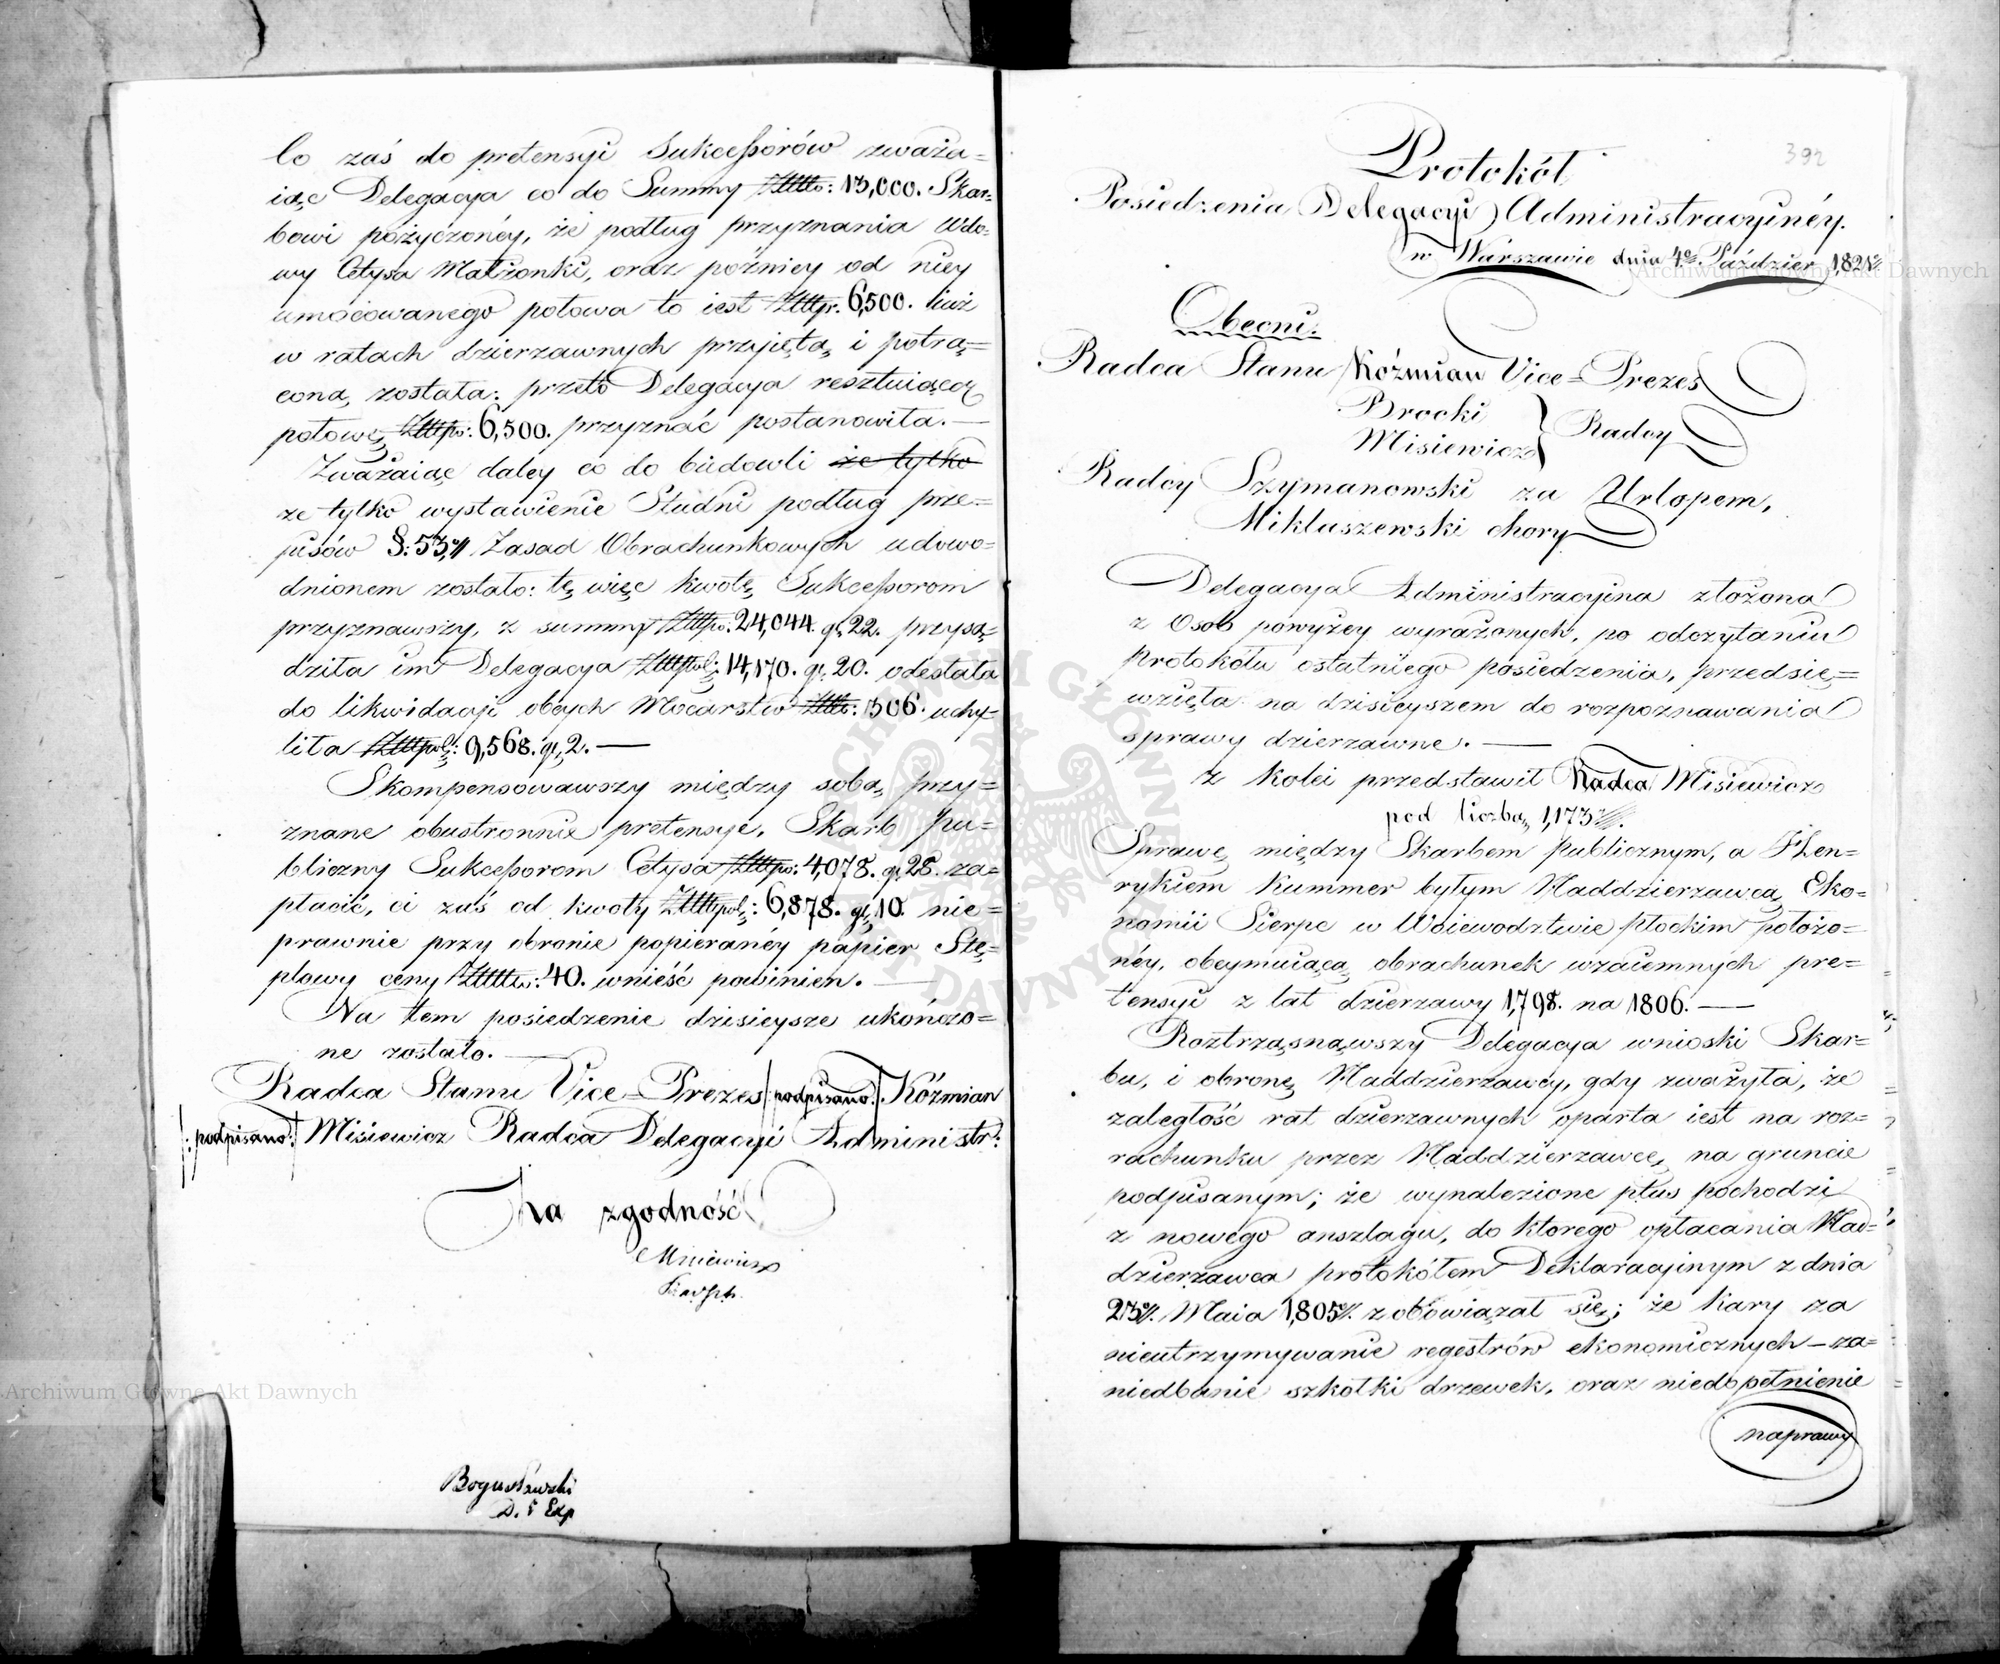 Co zaś do pretensyi Sukcessorów zważa=
iąc Delegacya co do Summy Złtto: 13,000. Skar=
bowi pożyczonéy, że podług przyznania Wdo=
wy Cetysa Małżonki, oraz poźniey od niey
umocowanego połowa to iest Złttp: 6,500. iuż
w ratach dzierzawnych przyięta, i potrą=
coną, została: przeto Delegacya resztuiącą
połowę Złttpo: 6,500. przyznać postanowiła. —
Zważaiąc daley co do budowli że tylko
ze tylko wystawienie Studni podług prze=
pisów §: 53. Zasad Obrachunkowych udowo=
dnionem zostało: tę więc kwotę Sukcessorom
przyznawszy, z summy Złttpo: 24,044. gr, 22. przysą=
dziła im Delegacya Złttpol: 14,170. gr, 20. odesłała
do likwidacyi obcych Mocarstw Złtto: 306. uchy=
liła Złttpol: 9,568. gr, 2. —
Skompensowawszy między sobą, przy=
znane obustronnie pretensye, Skarb pu=
bliczny Sukcessorom Cetysa Złttpo: 4,078. gr, 28. za=
płacić, ci zaś od kwoty Złttpol: 6,878. gr, 10. nie=
prawnie przy obronie popieranéy papier Stę=
plowy ceny Złttto: 40. wnieść powinien. —
Na tem posiedzenie dzisieysze ukończo=
ne zostało. —
Radca Stanu Vice=Prezes /: podpisano :/ Kóźmian
/: podpisano :/ Misiewicz Radca Delegacyi Administr:
Za zgodność
Misiewicz
Bogusławski
D. E Exp
392
Protokół
Posiedzenia Delegacyi Administracyinéy.
w Warszawie dnia 4go Paździer 1,821
Obecni.
Radca Stanu Kóźmian Vice=Prezes
Brocki
Misiewicz } Radcy
Radcy Szymanowski za Urlopem,
Mikluszewski chory
Delegacya Administracyina złożona
z Osob powyżey wyrażonych, po odczytaniu
protokółu ostatniego posiedzenia, przedsię=
wzięła na dzisieyszem do rozpoznawania
sprawy dzierzawne. —
z kolei przedstawił Radca Misiewicz
pod liczbą, 1,173
Sprawę między Skarbem publicznym, a Hen=
rykiem Kummer byłym Naddzierzawcą Eko=
nomii Sierpc w Woiewodztwie płockim położo=
néy, obeymuiącą obrachunek wzaiemnych pre=
tensyi z lat dzierzawy 1,798. na 1806. —
Roztrząsnąwszy Delegacya wnioski Skar=
bu, i obronę Naddzierzawcy, gdy zważyła, że
zaległość rat dzierzawnych oparta iest na roz=
rachunku przez Naddzierzawcę, na gruncie
podpisanym; że wynalezione plus pochodzi
z nowego anszlagu, do ktorego opłacania Nad=
dzierzawca protokółem Deklaracyinym z dnia
23. Maia 1,805. zobowiązał się; że kary za
nieutrzymywanie regestrów ekonomicznych — za=
niedbanie szkołki drzewek, oraz niedopełnienie
naprawy
Archiwum Główne Akt Dawnych
Archiwum Główne Akt Dawnych
ARCHIWUM GŁÓWNE AKT DAWNYCH